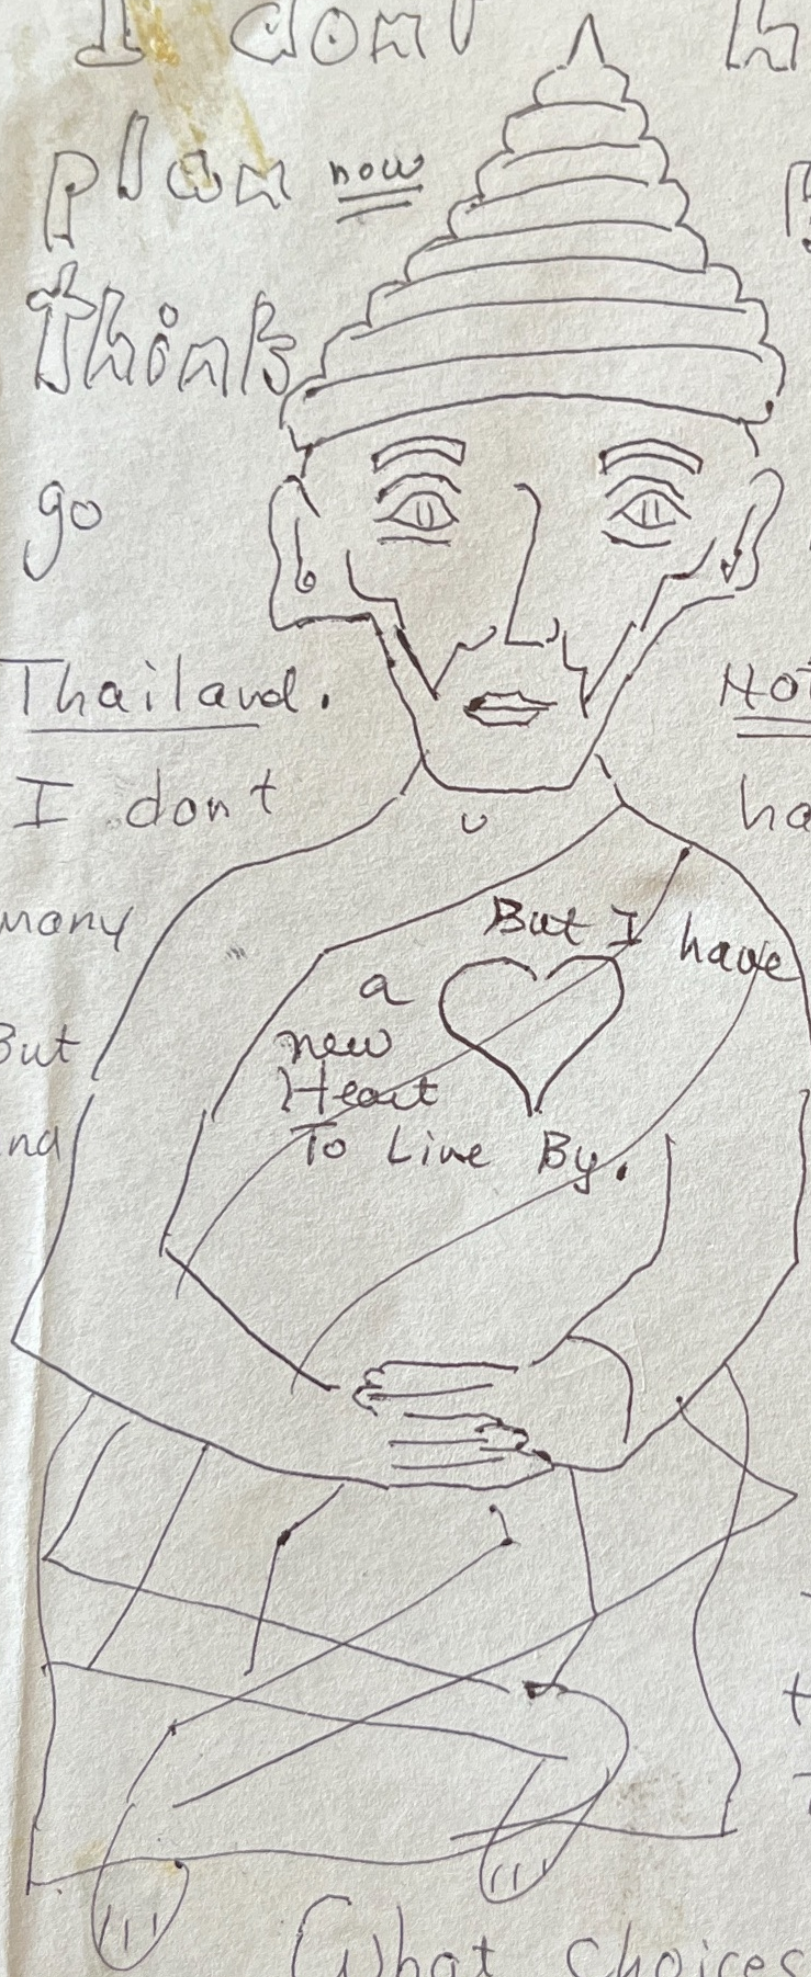 I dont h
plan now
think
go
Thailand. NOT
I dont ha
many
But I have
a
But new
Heart
nd To Live By.
What choices